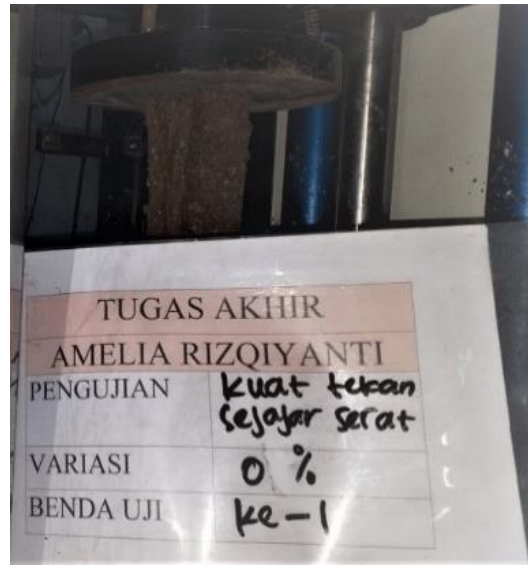 TUGAS AKHIR
AMELIA RIZQIYANTI
PENGUJIAN kuat tekan
sejajar serat
VARIASI 0 %
BENDA UJI ke-1